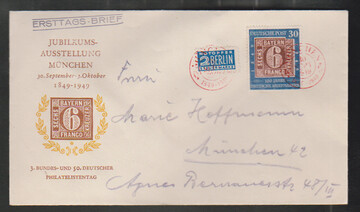 ERSTTAGS-BRIEF
JUBILÄUMS-
AUSSTELLUNG
MÜNCHEN
30. September-3. Oktober
1849-1949
BAYERN
SECHS
6
KREUZER
FRANCO
3. BUNDES- UND 50. DEUTSCHER
PHILATELISTENTAG
NOTOPFER
2 BERLIN
STEUERMARKE
DEUTSCHE POST
30
BAYERN
SECHS
6
KREUZER
FRANCO
Marie Hoffmann
München 42
Agnes Bernauerstr. 48/III